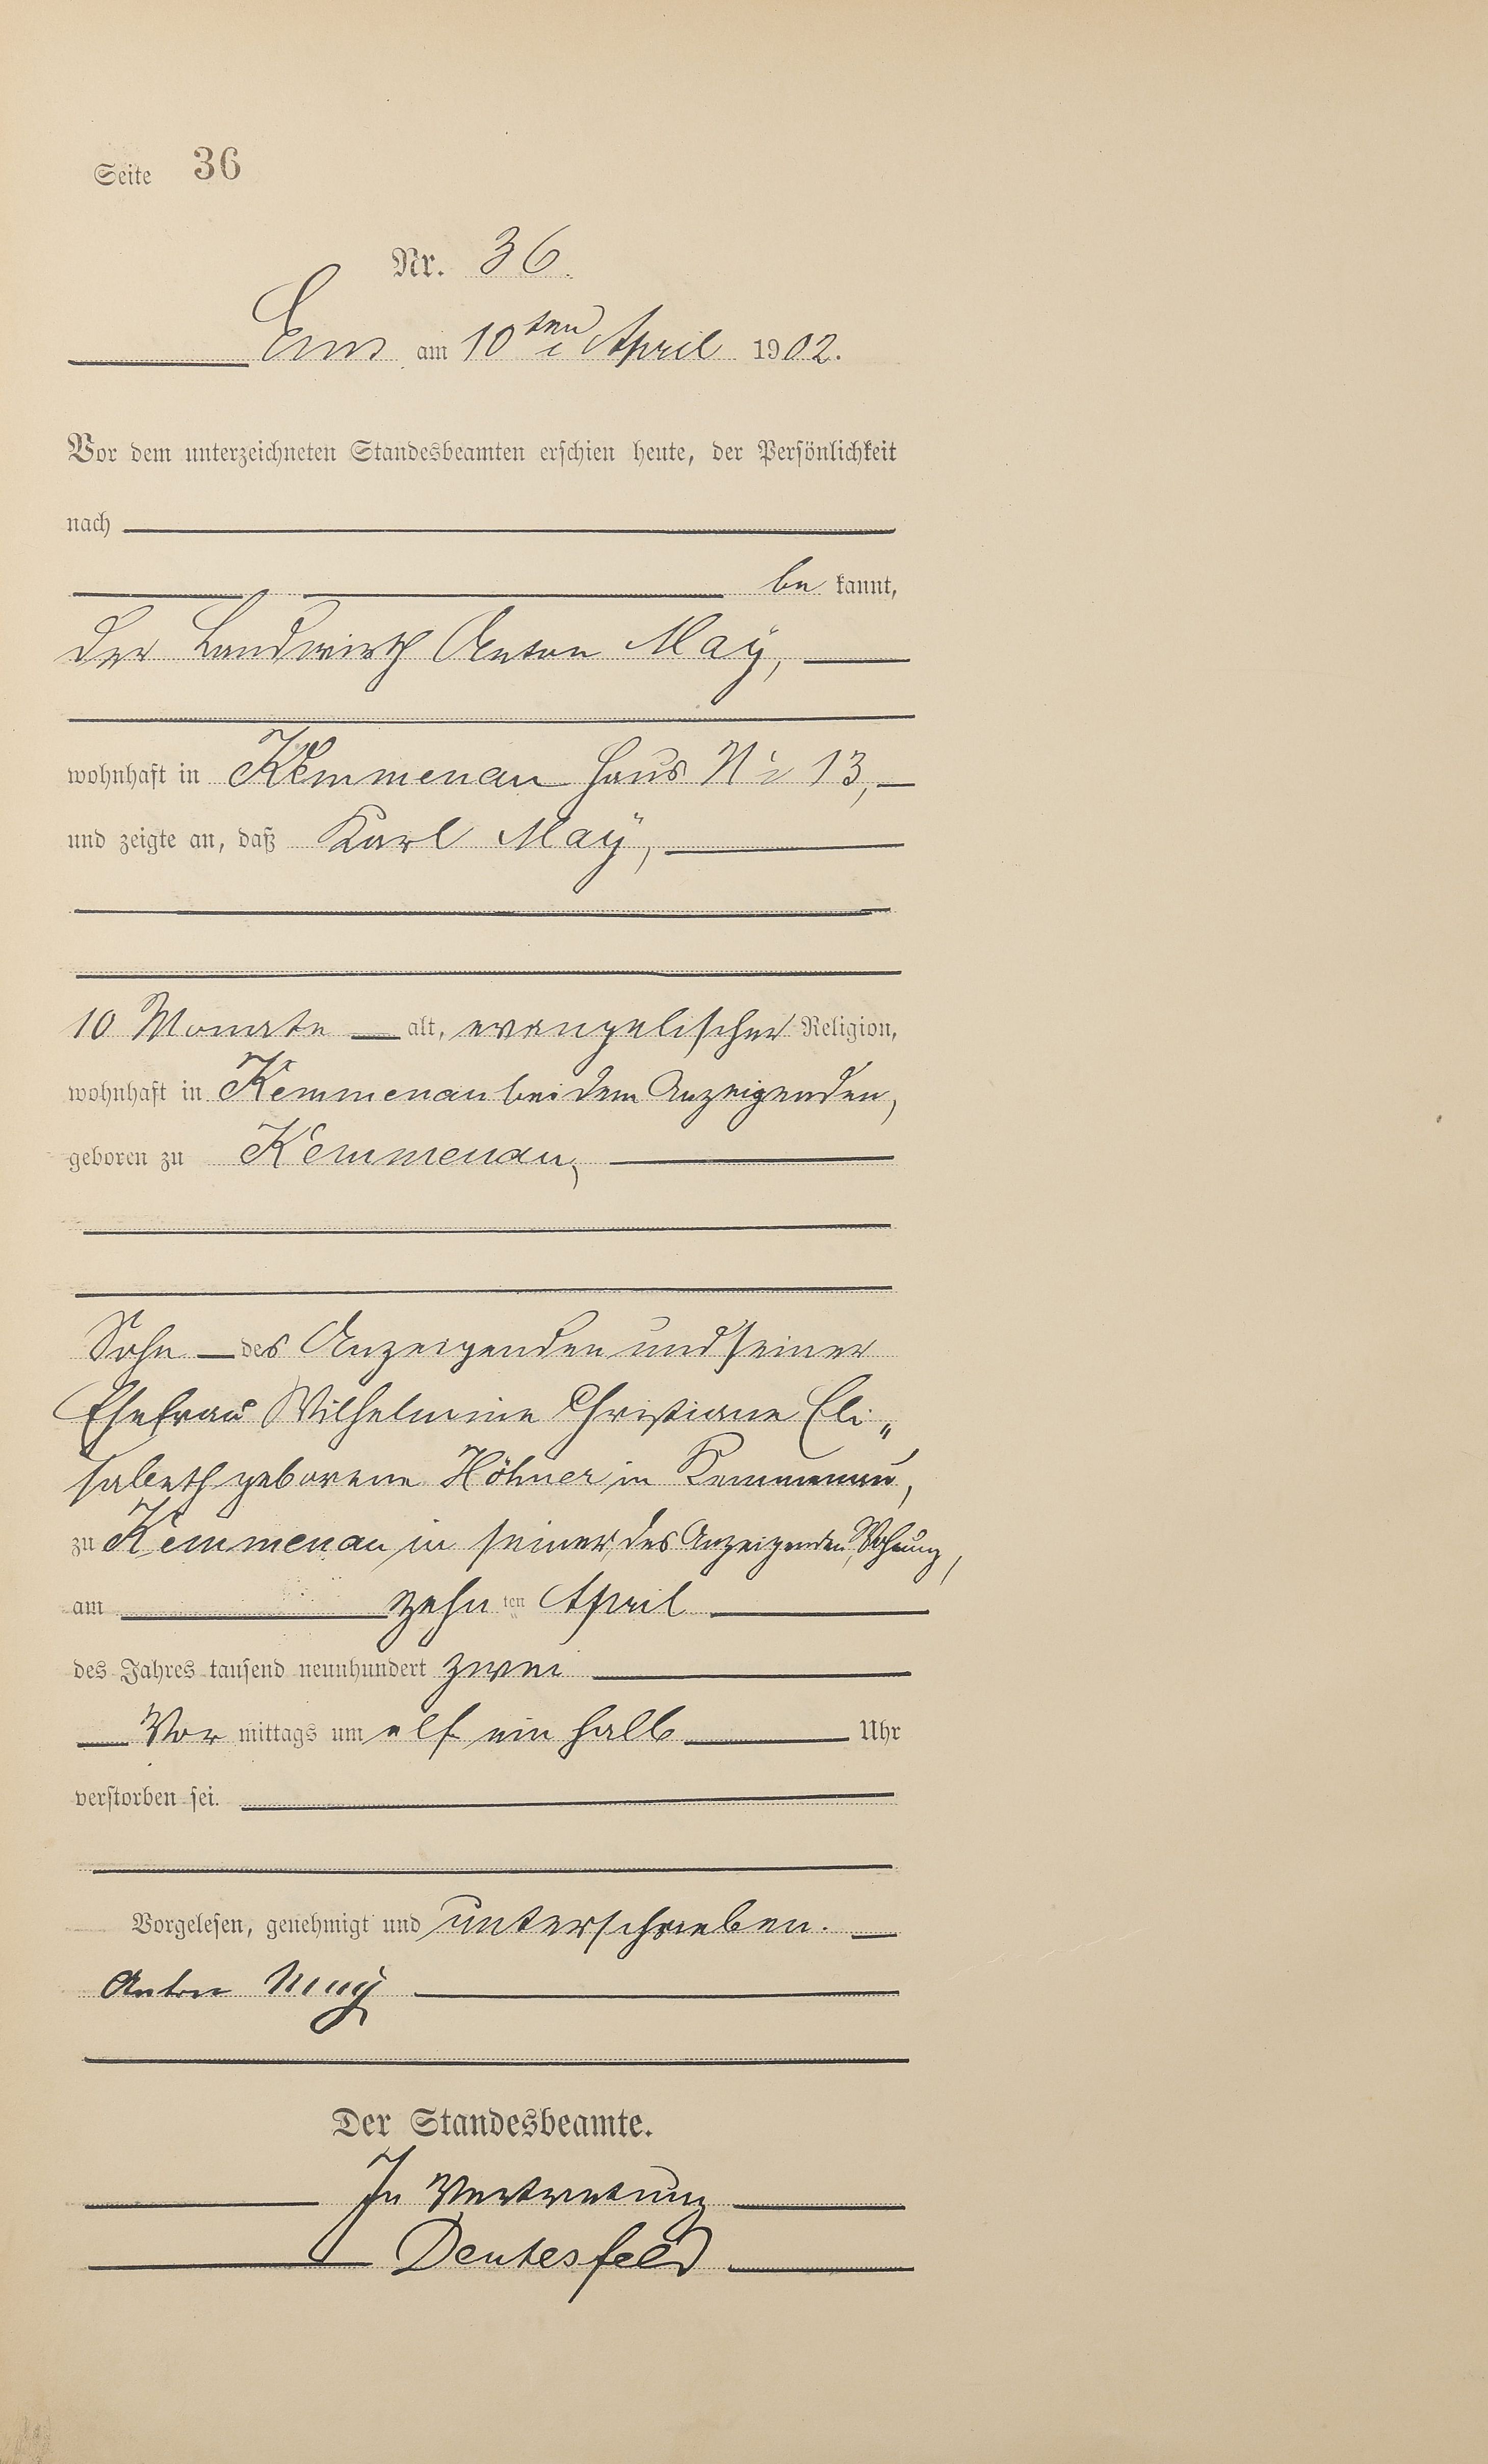 Seite 36
Nr. 36.
Ems am 10ten April 1902.
Vor dem unterzeichneten Standesbeamten erschien heute, der Persönlichkeit
nach
be kannt,
der Landwirth Anton Maÿ,
wohnhaft in Kemmenau Haus No 13,
und zeigte an, daß Karl Maÿ,
10 Monate alt, evangelischer Religion,
wohnhaft in Kemmenau bei dem Anzeigenden,
geboren zu Kemmenau,
Sohn des Anzeigenden und seiner
Ehefrau Wilhelmine Christiane Eli„
sabeth geborene Höhner in Kemmenau,
zu Kemmenau in seiner, des Anzeigenden, Wohnung,
am zehn ten April
des Jahres tausend neunhundert zwei
Vor mittags um elf ein halb Uhr
verstorben sei.
Vorgelesen, genehmigt und unterschrieben.
Anton Maÿ
Der Standesbeamte.
In Vertretung
Deutesfeld